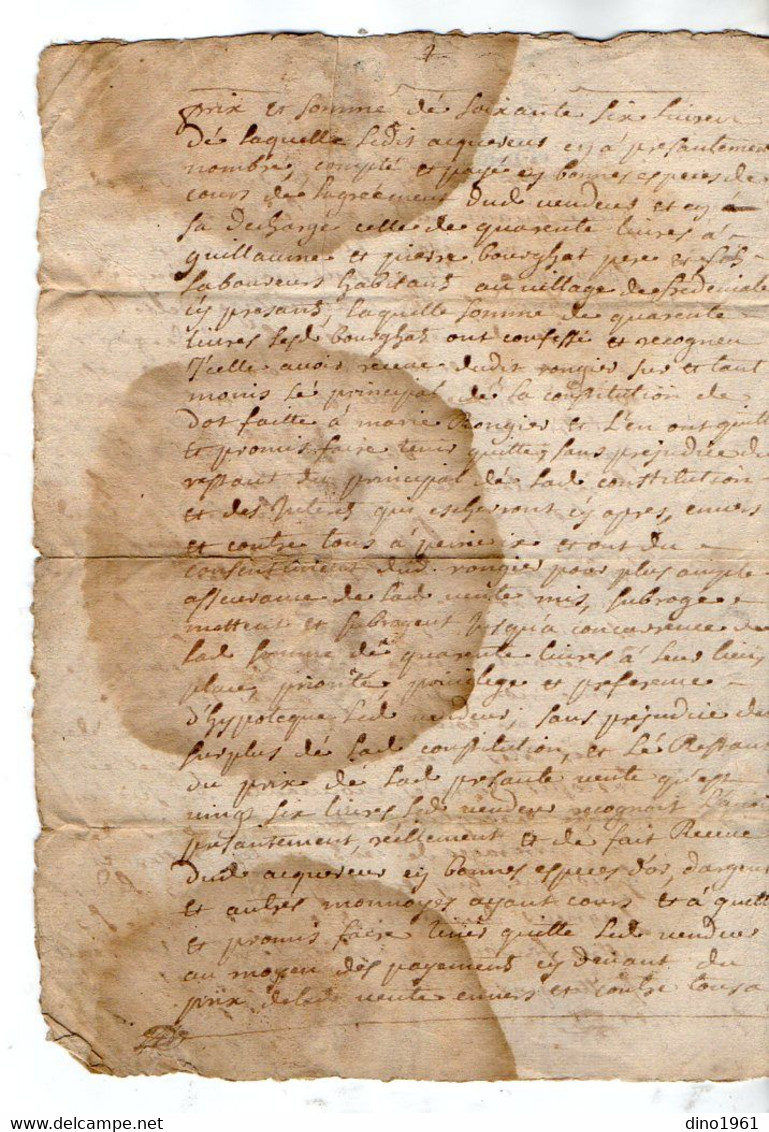 prix et somme de soixante six livres
dé laquelle ledit acquereur en a presentemen
nombré, compté et payé en bonnes especes de
cours de lagreement dud. vendeur et en
sa decharge celle de quarente livres a
guillaume et pierre bourghat pere et fils
laboureurs habitans au village de
cy presans, laquelle somme de quarente
livres lesd. bourghat ont confessé et recogneu
Jcelle avoir receue dudit rongier sur et tant
moins lé principal dé la constitution de
dot faitte à marie Rongier et L'en ont quitt
et promis faire tenir quitte, sans prejudice du
restant du principal dé lad. constitution
et des Interes qui escherront cy apres, envers
et contre tous à peine et ont du
consentiment dud. rongier pour plus ample
asseurance de lad. vente mis, subrogé,
mettent et subrogent Jusqua concurrence de
lad. somme dé quarente livres à leur lieu
place, priorité, privilege et preference
d'hypoteque led. vendeur, sans prejudice du
surplus dé lad. constitution, et Lé Restan
du prix dé lad. presante vente qu'est
vingt six livres led. vendeur recognoit L'avoi
presantement, reellement et dé fait Receue
dud. acquereur en bonnes especes d'or, d'argent
et autres monnoyes ayant cours et a quitt
et promis faire tenir quitte led. vendeur
au moyen des payemens cy devant du
prix delad. vente envers et contre tous a
dino1961